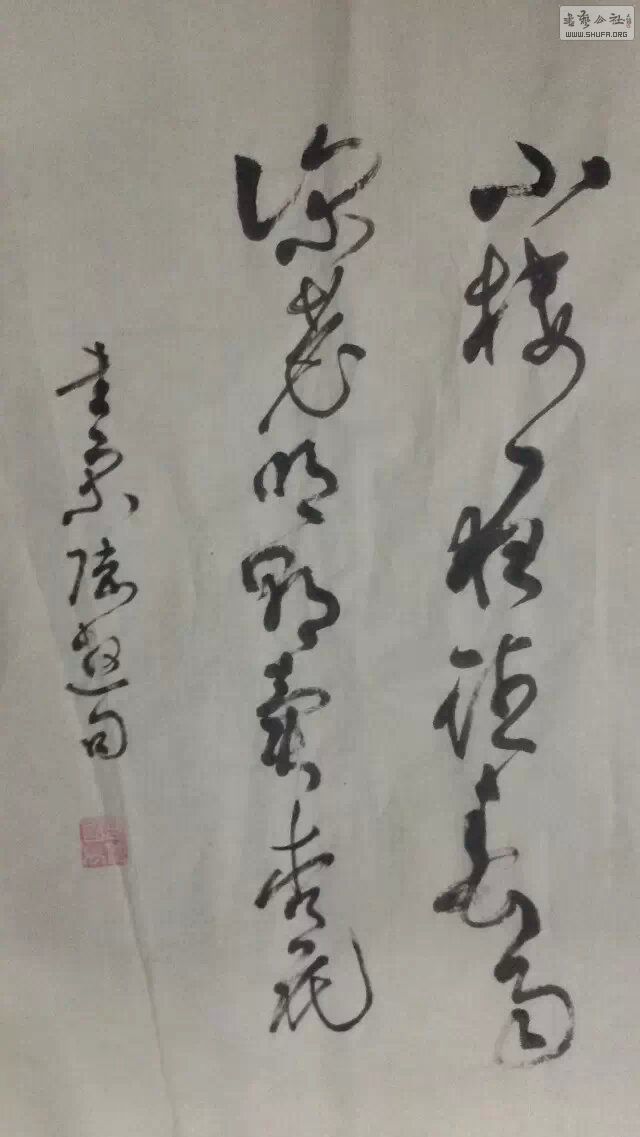 書藝公社
WWW.SHUFA.ORG
小樓一夜聽春雨
深巷明朝賣杏花
書宋陸遊句